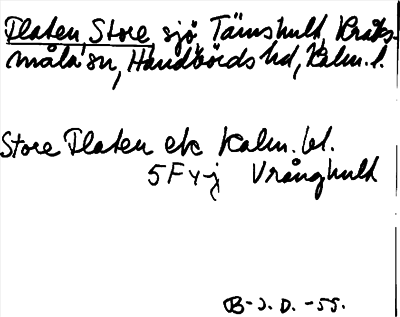 Flaten, Store, sjö, Tämshult, Kråks-
måla sn, Handbörds hd, Kalm. l.
Store Flaten ek Kalm. bl.
5F y-j Vrånghult
B-J. D. -55.